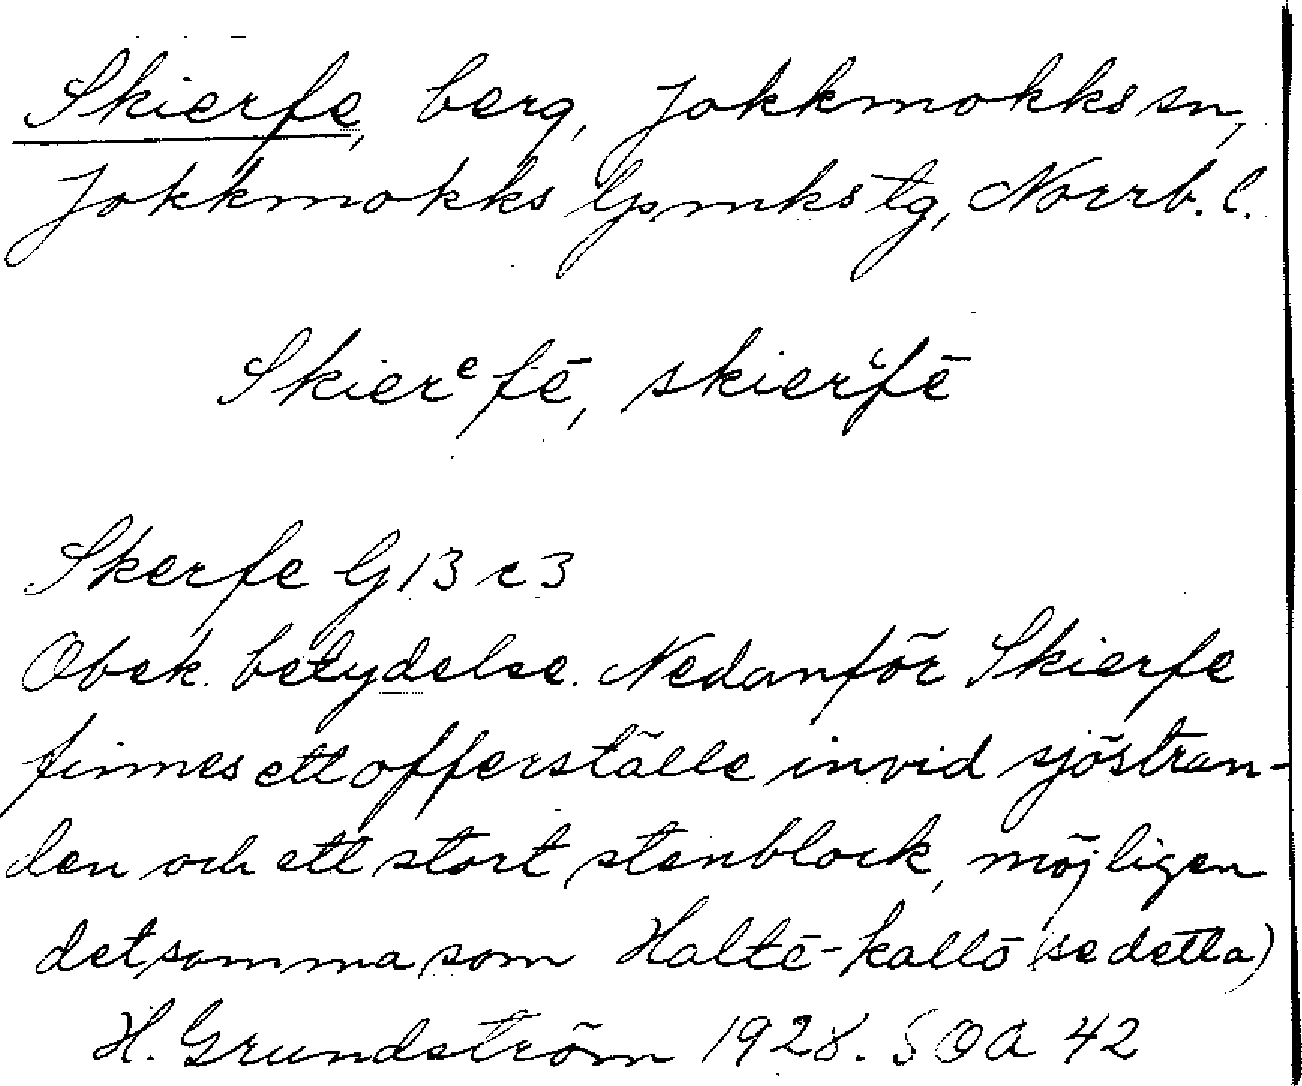 Skierfe, berg, Jokkmokks sn,
Jokkmokks lpmks tg, Norrb. l.
Skierᵉfē, skierᵉfē
Skerfe G 13 c 3
Obek. betydelse. Nedanför Skierfe
finnes ett offerställe invid sjöstran-
den och ett stort stenblock, möjligen
detsamma som Haltē-kallō (se detta)
H. Grundström 1928. SOA 42